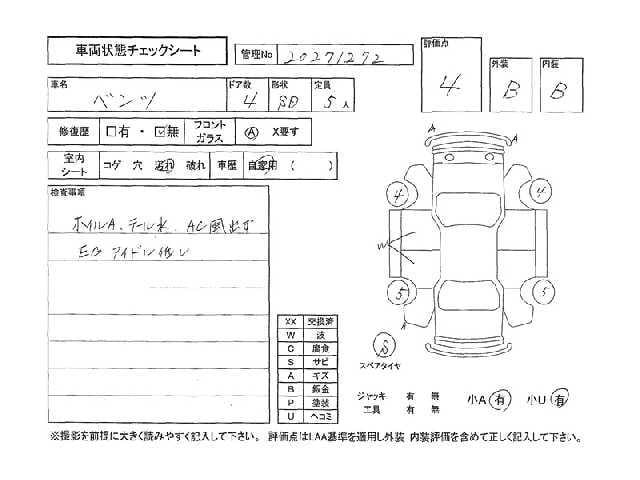 車両状態チェックシート
管理No 20271272
評価点 4
外装 B
内装 B
車名 ベンツ
ドア数 4
形状 SD
定員 5人
修復歴 □有・☑無
フロントガラス Ⓐ X要す
室内シート コゲ 穴 汚れ 破れ
車歴 自家用 ( )
検査事項
ホイルA、テール水、AC風出ず
EGアイドル修レ
A A
4 4
W
5 5
A
S
スペアタイヤ
XX 交換済
W 波
C 腐食
S サビ
A キズ
B 鈑金
P 塗装
U ヘコミ
ジャッキ 有 無
工具 有 無
小A 有
小U 有
※撮影を前提に大きく読みやすく記入して下さい。 評価点はLAA基準を適用し外装 内装評価を含めて正しく記入して下さい。